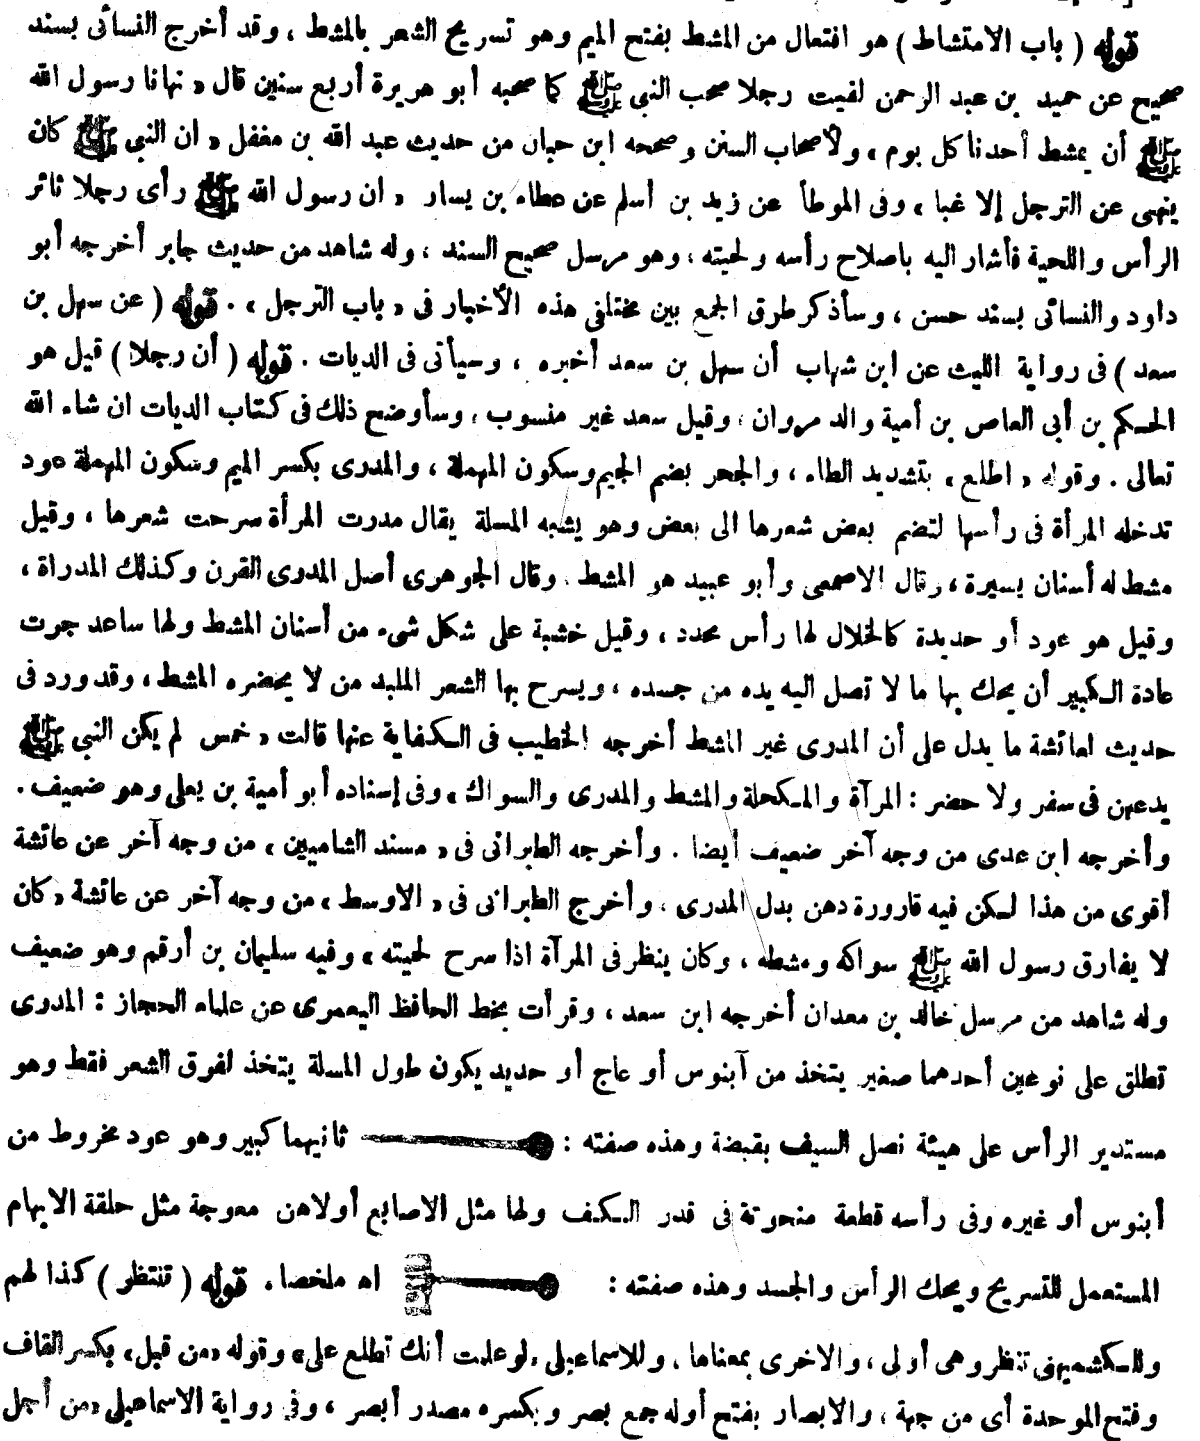 قوله ( باب الامتشاط ) هو افتعال من المشط بفتح الميم وهو تسريح الشعر بالمشط ، وقد أخرج النسائى بسند
صحيح عن حميد بن عبد الرحمن لقيت رجلا صحب النبى ﷺ كما صحبه أبو هريرة أربع سنين قال « نهانا رسول الله
ﷺ أن يمشط أحدنا كل يوم » ولأصحاب السنن وصححه ابن حبان من حديث عبد الله بن مغفل « ان النبى ﷺ كان
ينهى عن الترجل إلا غبا » وفى الموطأ عن زيد بن أسلم عن عطاء بن يسار « ان رسول الله ﷺ رأى رجلا ثائر
الرأس واللحية فأشار اليه باصلاح رأسه ولحيته ، وهو مرسل صحيح السند ، وله شاهد من حديث جابر أخرجه أبو
داود والنسائى بسند حسن ، وسأذكر طرق الجمع بين مختلفى هذه الأخبار فى « باب الترجل » . قوله ( عن سهل بن
سعد ) فى رواية الليث عن ابن شهاب أن سهل بن سعد أخبره ، وسيأتى فى الديات . قوله ( أن رجلا ) قيل هو
الحكم بن أبى العاص بن أمية والد مروان ، وقيل سعد غير منسوب ، وسأوضح ذلك فى كتاب الديات ان شاء الله
تعالى . وقوله « اطلع » بتشديد الطاء ، والجحر بضم الجيم وسكون المهملة ، والمدرى بكسر الميم وسكون المهملة عود
تدخله المرأة فى رأسها لتضم بعض شعرها الى بعض وهو يشبه المسلة يقال مدرت المرأة سرحت شعرها ، وقيل
مشط له أسنان يسيرة ، وقال الاصمعى وأبو عبيد هو المشط . وقال الجوهرى أصل المدرى القرن وكذلك المدراة ،
وقيل هو عود أو حديدة كالخلال لها رأس محدد ، وقيل خشبة على شكل شىء من أسنان المشط ولها ساعد جرت
عادة الكبير أن يحك بها ما لا تصل اليه يده من جسده ، ويسرح بها الشعر الملبد من لا يحضره المشط ، وقد ورد فى
حديث لعائشة ما يدل على أن المدرى غير المشط أخرجه الخطيب فى الكفاية عنها قالت « خمس لم يكن النبى ﷺ
يدعهن فى سفر ولا حضر : المرآة والمكحلة والمشط والمدرى والسواك » وفى إسناده أبو أمية بن يعلى وهو ضعيف .
وأخرجه ابن عدى من وجه آخر ضعيف أيضا . وأخرجه الطبرانى فى « مسند الشاميين » من وجه آخر عن عائشة
أقوى من هذا لكن فيه قارورة دهن بدل المدرى . وأخرج الطبرانى فى « الاوسط » من وجه آخر عن عائشة « كان
لا يفارق رسول الله ﷺ سواكه ومشطه ، وكان ينظر فى المرآة اذا سرح لحيته » وفيه سليمان بن أرقم وهو ضعيف
وله شاهد من مرسل خالد بن معدان أخرجه ابن سعد ، وقرأت بخط الحافظ اليعمرى عن علماء الحجاز : المدرى
تطلق على نوعين أحدهما صغير يتخذ من آبنوس أو عاج أو حديد يكون طول المسلة يتخذ لفرق الشعر فقط وهو
مستدير الرأس على هيئة نصل السيف بقبضة وهذه صفته : ثانيهما كبير وهو عود مخروط من
أبنوس أو غيره وفى رأسه قطعة منحوتة فى قدر الكف ولها مثل الاصابع أولاهن معوجة مثل حلقة الابهام
المستعمل للتسريح ويحك الرأس والجسد وهذه صفته : اه ملخصا . قوله ( تنتظر ) كذا لهم
وللكشميهنى تنظر وهى أولى ، والاخرى بمعناها ، وللاسماعيلى « لو علمت أنك تطلع على » وقوله « من قبل » بكسر القاف
وفتح الموحدة أى من جهة ، والابصار بفتح أوله جمع بصر وبكسره مصدر أبصر ، وفى رواية الاسماعيلى « من أجل